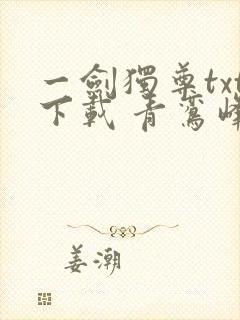 一劍獨尊txt
下載 青鸞峰
姜潮